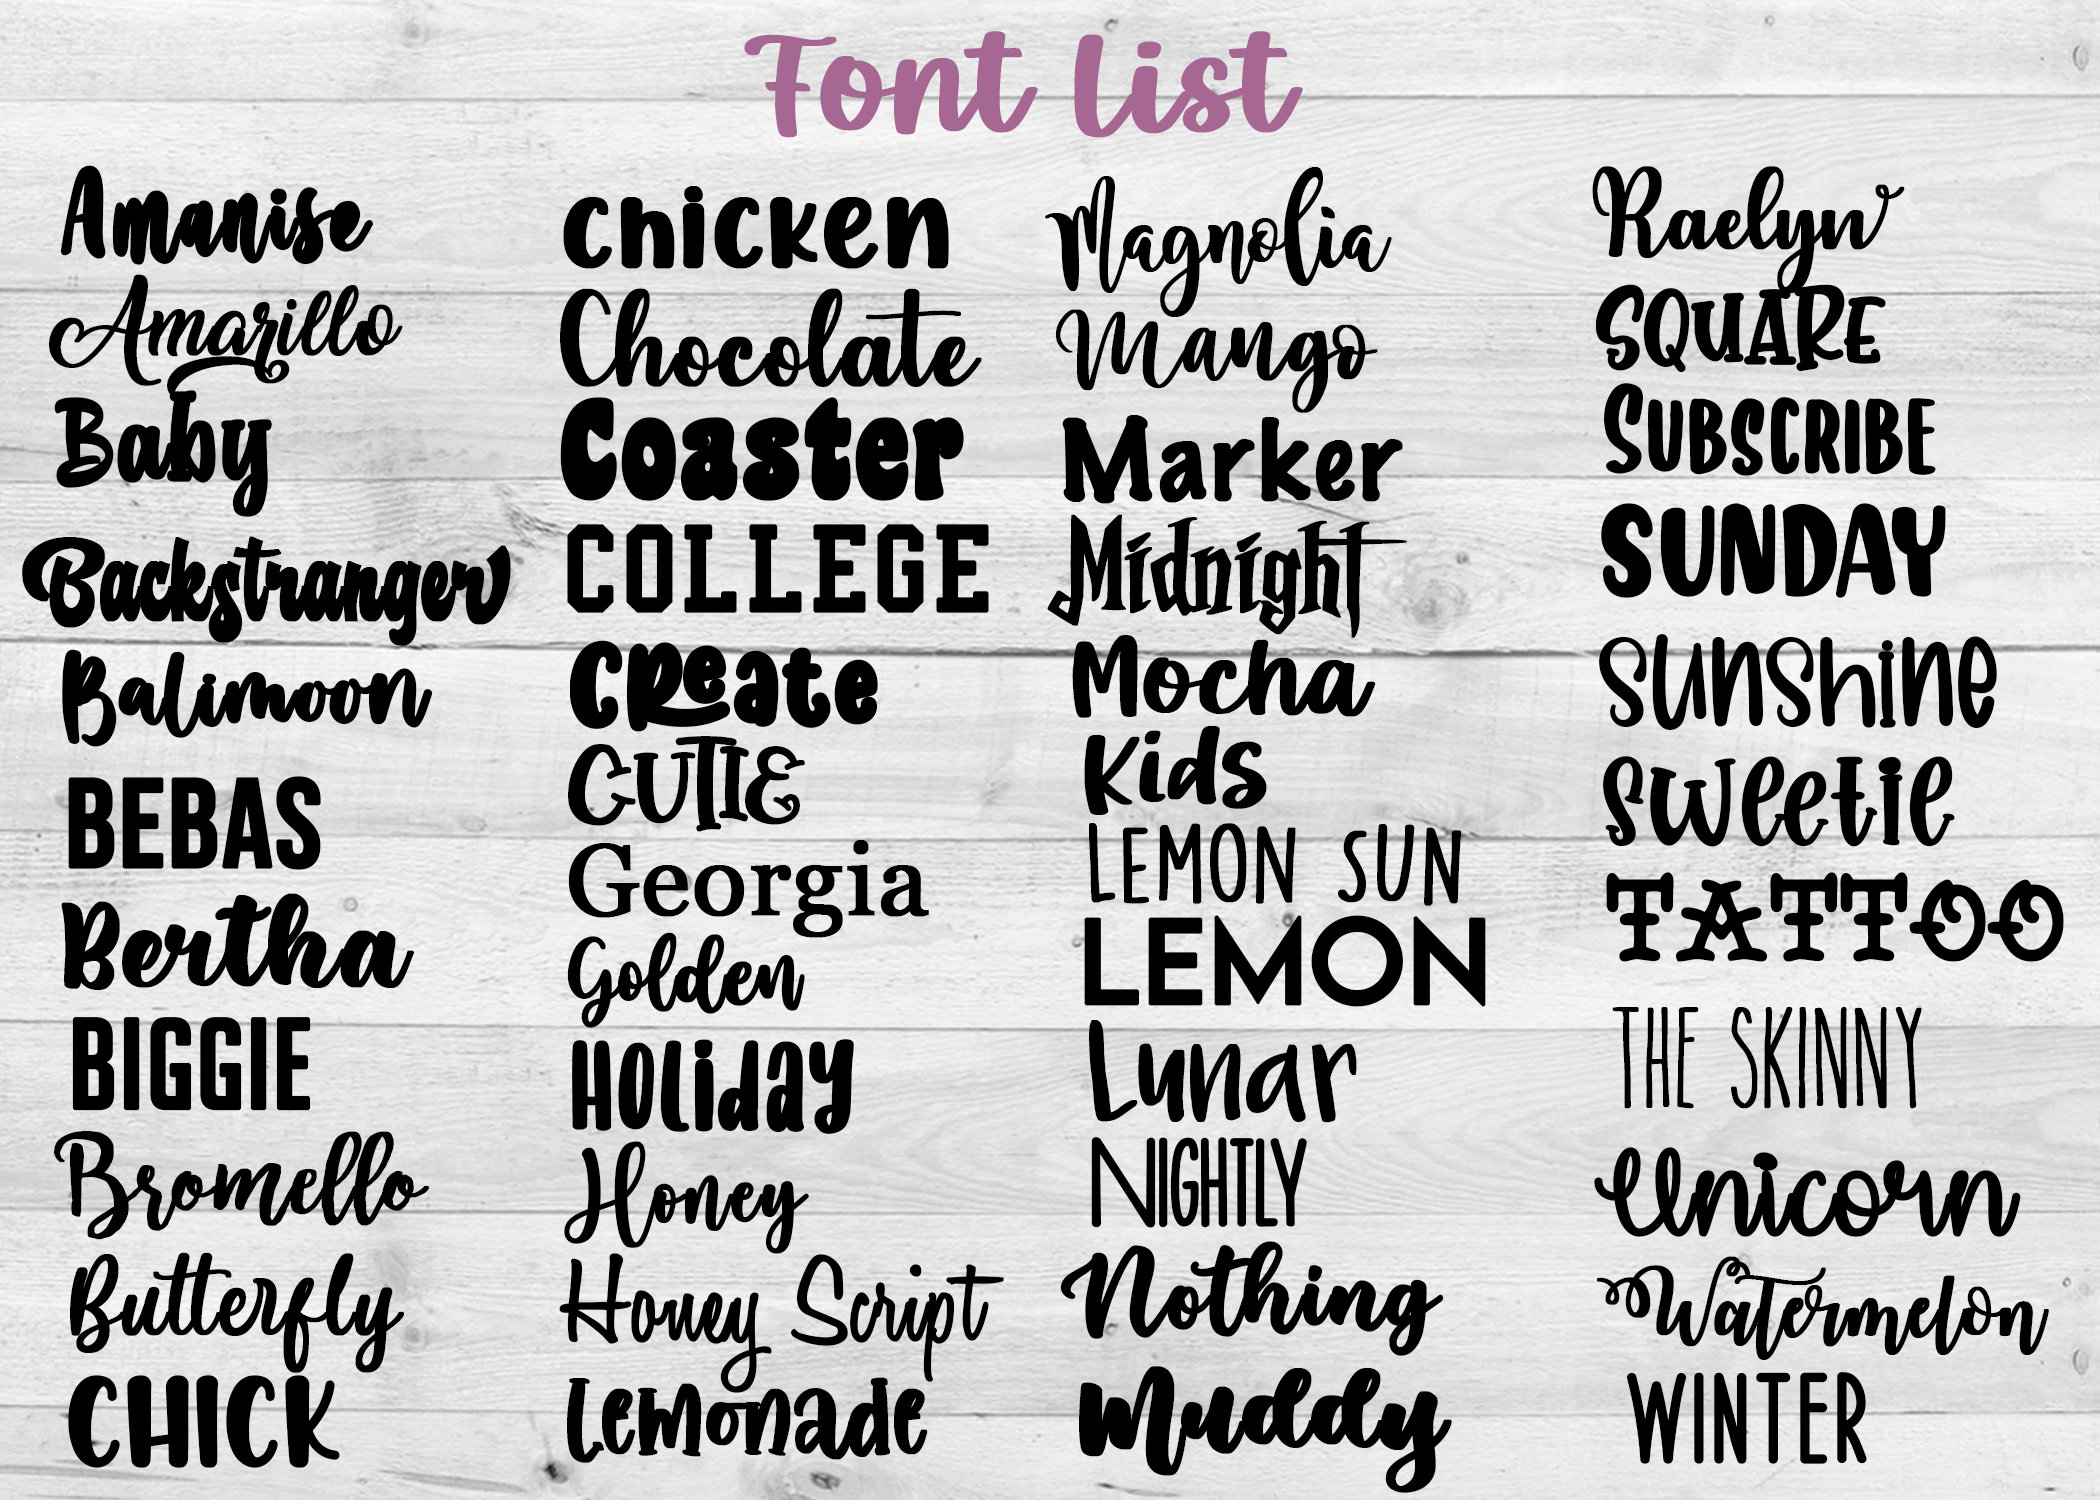 Font list
Amanise
Amarillo
Baby
Backstranger
Balimoon
BEBAS
Bertha
BIGGIE
Bromello
Butterfly
CHICK
Chicken
Chocolate
Coaster
COLLEGE
Create
CUTIE
Georgia
Golden
Holiday
Honey
Honey Script
Lemonade
Magnolia
Mango
Marker
Midnight
Mocha
Kids
LEMON SUN
LEMON
Lunar
NIGHTLY
Nothing
Muddy
Raelyn
SQUARE
SUBSCRIBE
SUNDAY
Sunshine
Sweetie
TATTOO
THE SKINNY
Unicorn
Watermelon
WINTER